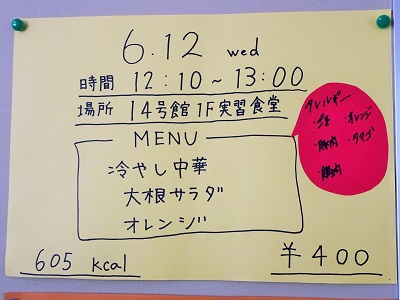 6.12 wed
時間 12:10~13:00
場所 14号館1F実習食堂
MENU
冷やし中華
大根サラダ
オレンジ
605 kcal
¥400
アレルギー
・オレンジ
・豚肉 ・タマゴ
・鶏肉